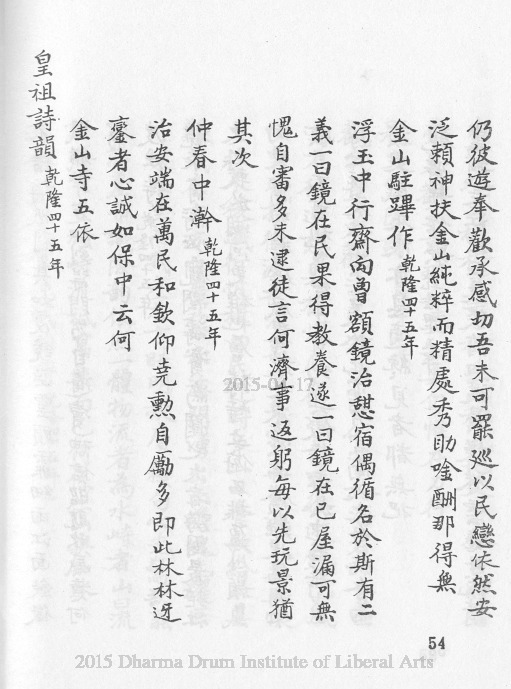 仍彼遊奉歡承感切吾未可罷廵以民戀依然安
泛賴神扶金山純粹而精處秀助唫酬那得無
金山駐蹕作 乾隆四十五年
浮玉中行齋向曽額鏡治憇宿偶循名於斯有二
義一曰鏡在民果得教養遂一曰鏡在已屋漏可無
愧自審多未逮徒言何濟事返躬每以先玩景猶
其次
仲春中澣 乾隆四十五年
治安端在萬民和欽仰堯勲自勵多即此林林迓
鑾者心誠如保中云何
金山寺五依
皇祖詩韻 乾隆四十五年
54
2015-04-17
2015 Dharma Drum Institute of Liberal Arts